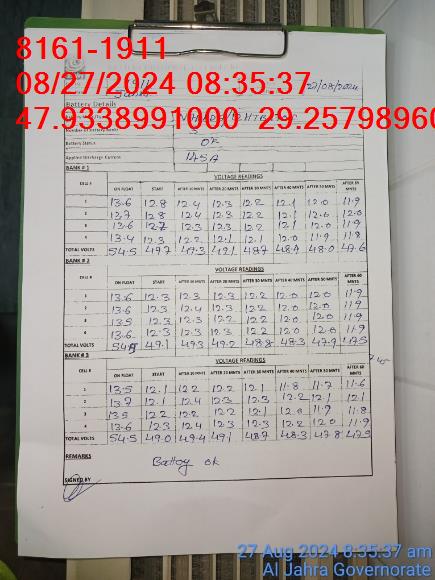 8161-1911
08/27/2024 08:35:37
47.9338991000 29.25798960
27/08/2024
Battery Details
Battery Status OK
Applied Discharge Current 145A
BANK # 1
CELL # VOLTAGE READINGS
ON FLOAT START AFTER 10 MNTS AFTER 20 MNTS AFTER 30 MNTS AFTER 40 MNTS AFTER 50 MNTS AFTER 60 MNTS
1 13.6 12.8 12.4 12.3 12.2 12.1 12.0 11.9
2 13.7 12.8 12.4 12.3 12.2 12.1 12.0 12.0
3 13.6 12.7 12.3 12.3 12.2 12.1 12.0 11.9
4 13.4 12.3 12.2 12.1 12.1 12.0 11.9 11.8
TOTAL VOLTS 54.5 49.7 49.3 49.1 48.7 48.0 47.6
BANK # 2
CELL # VOLTAGE READINGS
ON FLOAT START AFTER 10 MNTS AFTER 20 MNTS AFTER 30 MNTS AFTER 40 MNTS AFTER 50 MNTS AFTER 60 MNTS
1 13.6 12.3 12.3 12.3 12.2 12.0 12.0 11.9
2 13.6 12.3 12.4 12.3 12.2 12.0 12.0 11.9
3 13.5 12.3 12.3 12.2 12.2 12.0 12.0 11.9
4 13.6 12.3 12.3 12.3 12.2 12.0 12.0 11.9
TOTAL VOLTS 49.1 49.3 49.2 48.8 48.3 47.9 47.5
BANK # 3
CELL # VOLTAGE READINGS
ON FLOAT START AFTER 10 MNTS AFTER 20 MNTS AFTER 30 MNTS AFTER 40 MNTS AFTER 50 MNTS AFTER 60 MNTS
1 13.5 12.1 12.2 12.2 12.1 11.8 11.7 11.6
2 13.7 12.1 12.4 12.3 12.3 12.2 12.1 11.9
3 13.5 12.2 12.2 12.2 12.1 12.0 11.9 11.8
4 13.6 12.3 12.4 12.3 12.3 12.2 12.0 11.9
TOTAL VOLTS 54.5 49.0 49.4 49.1 48.7 48.3 47.8 47.5
REMARKS
Battery ok
SIGNED BY
27 Aug 2024 8:35:37 am
Al Jahra Governorate